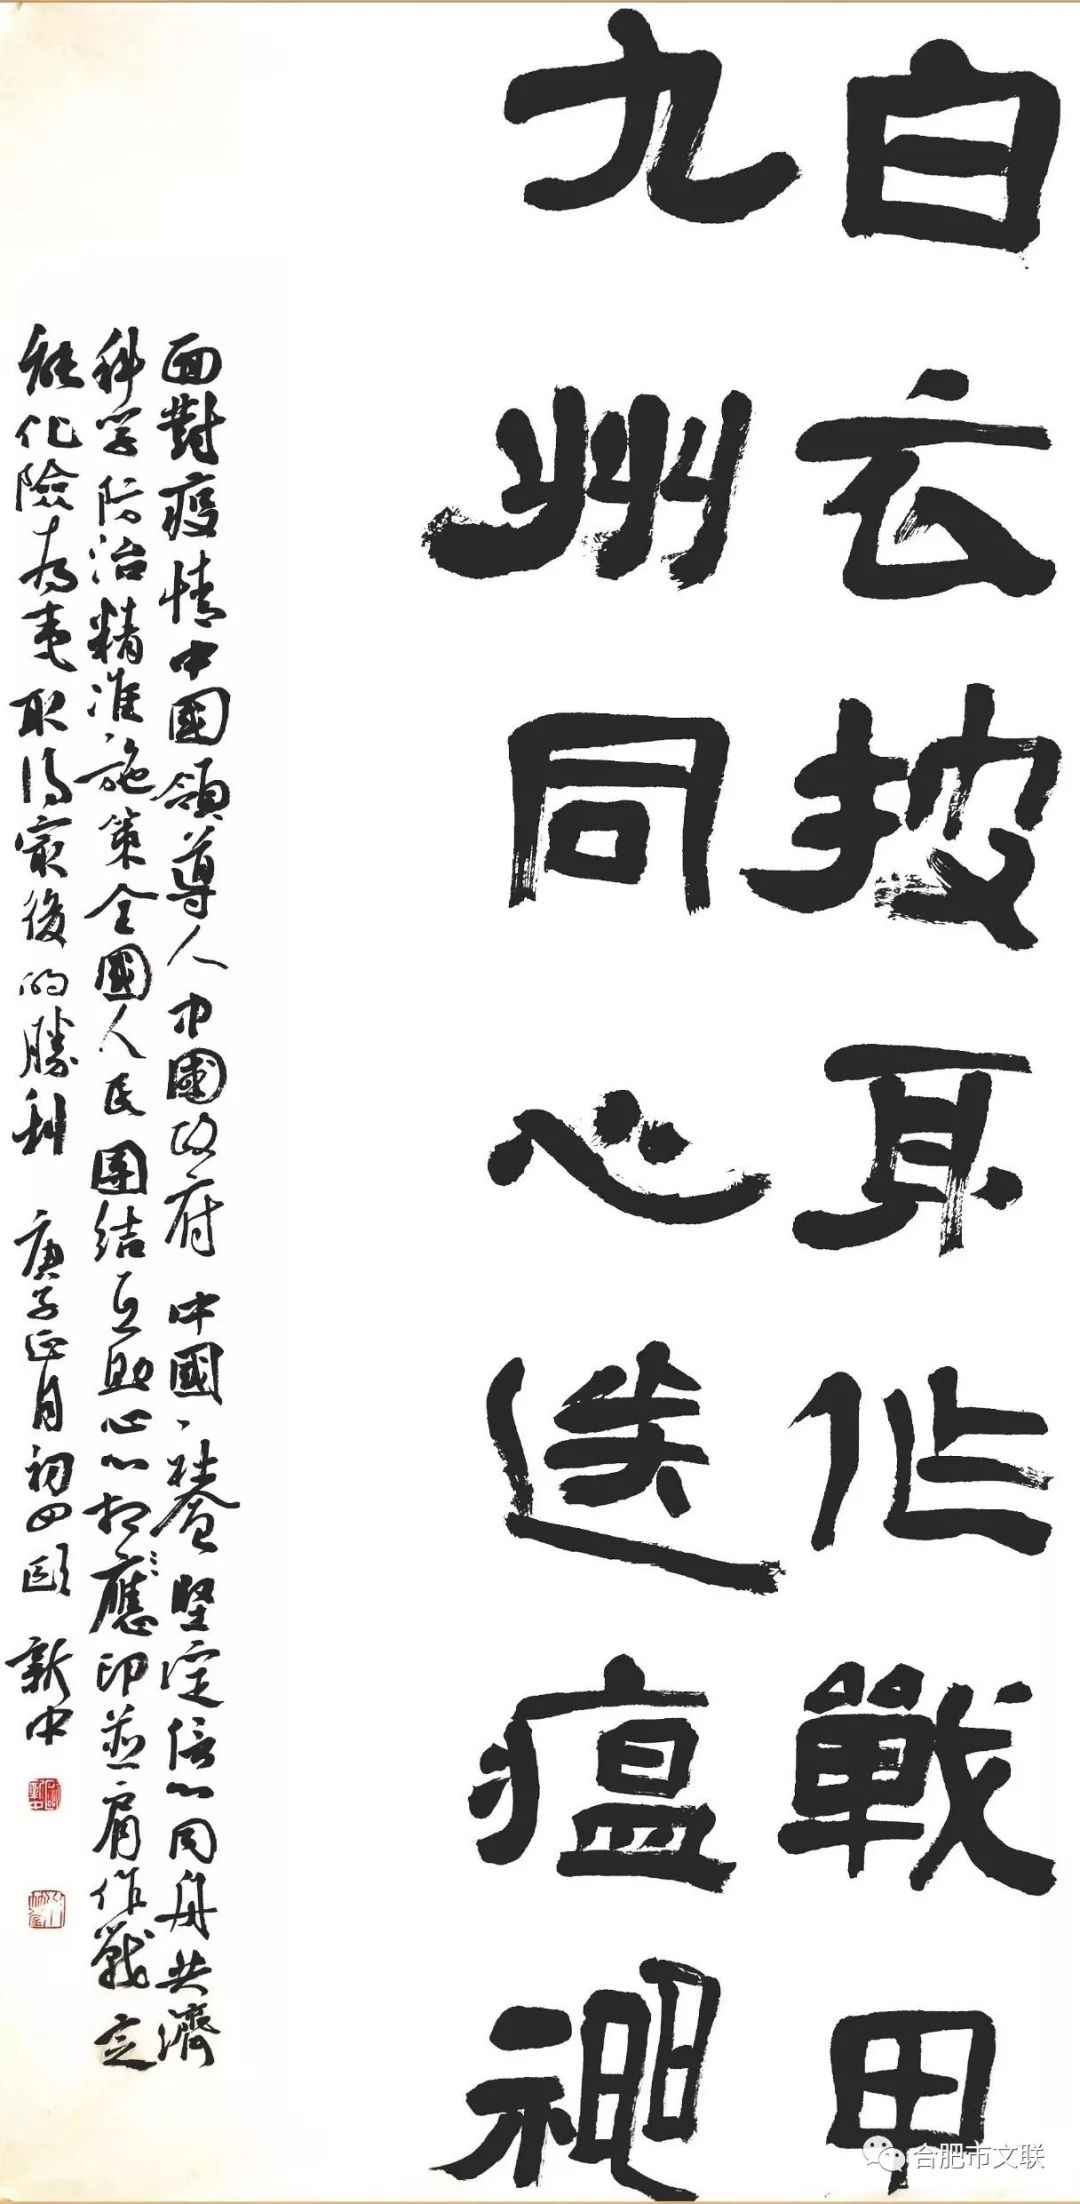 白衣披身作戰甲
九州同心送瘟神
面對疫情中國領導人中國政府 中國堅定信心同舟共濟
科学防治精准施策全國人民團結互助心心相應印並肩作戰定
能化險為夷取得最後的勝利 庚子正月初四歐新中
合肥市文联